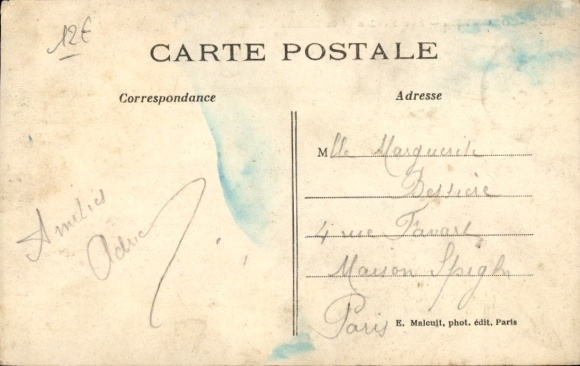 12€
CARTE POSTALE
Correspondance
Adresse
Amitiés
Mlle Marguerite
Bessière
4 rue Favart
Maison
Paris
E. Malcuit, phot. édit, Paris